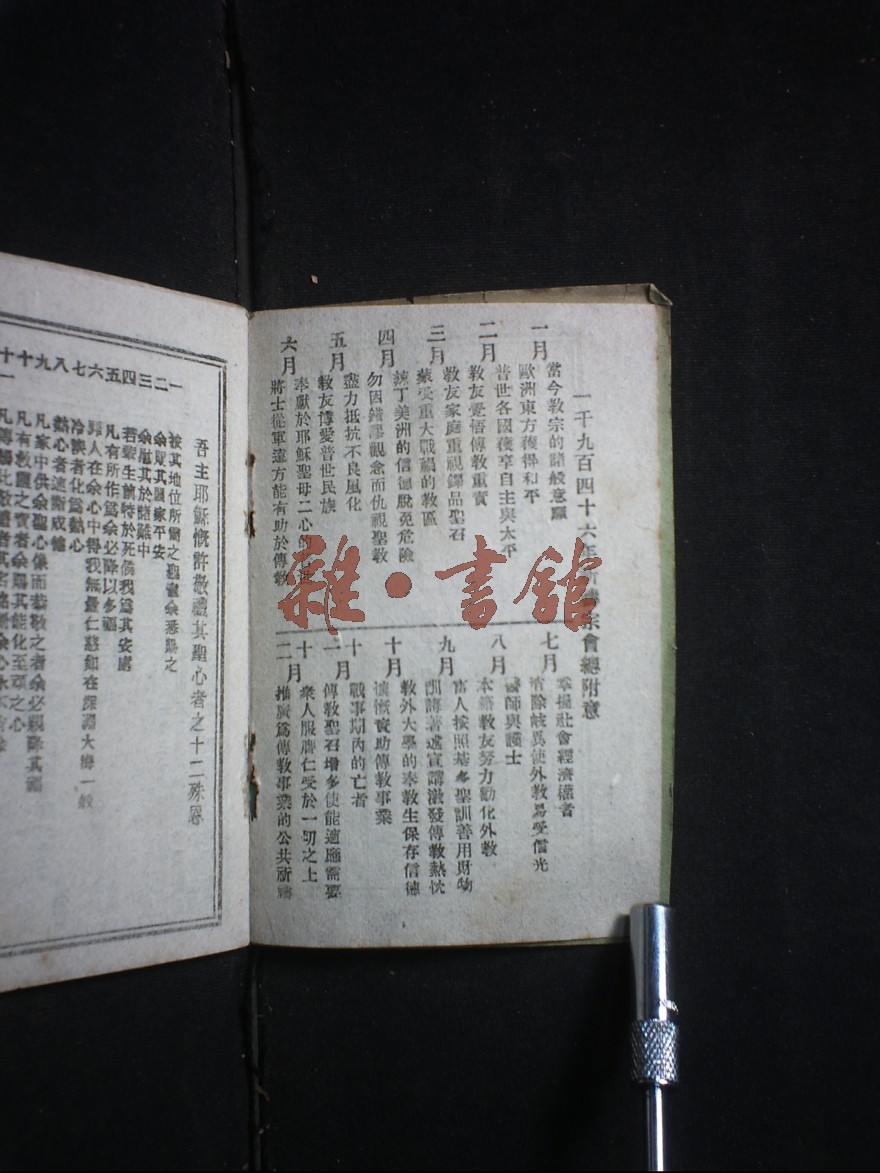 一千九百四十六年祈禱宗會總附意
一月
當今教宗的諸般意願
歐洲東方獲得和平
二月
普世各國獲享自主與太平
教友覺悟傳教重責
三月
教友家庭重視鐸品聖召
蒙受重大戰禍的教區
四月
辣丁美洲的信德脫免危險
勿因錯謬觀念而仇視聖教
五月
盡力抵抗不良風化
教友博愛普世民族
六月
奉獻於耶穌聖母二心的
將士從軍遠方能有助於傳教
七月
掌握社會經濟權者
消除歧異使外教易受信光
八月
醫師與護士
本籍教友努力勸化外教
九月
富人按照基多聖訓善用財物
訓誨著述宣講激發傳教熱忱
十月
教外大學的奉教生保存信德
慷慨資助傳教事業
十一月
戰事期內的亡者
傳教聖召增多使能適應需要
十二月
衆人服膺仁愛於一切之上
推廣爲傳教事業的公共祈禱
雜·書館
吾主耶穌慨許敬禮其聖心者之十二殊恩
一 按其地位所需之聖寵余悉賜之
二 余賜其國家平安
三 余慰其於諸難中
四 若輩生前特於死候我爲其安處
五 凡有所作爲余必降以多福
六 罪人在余心中得我無量仁慈如在深淵大海一般
七 冷淡者化爲熱心
八 熱心者速臻成德
九 凡家中供余聖心像而恭敬之者余必親降其福
十 凡有救靈之責者余賜其能化至頑之心
十一